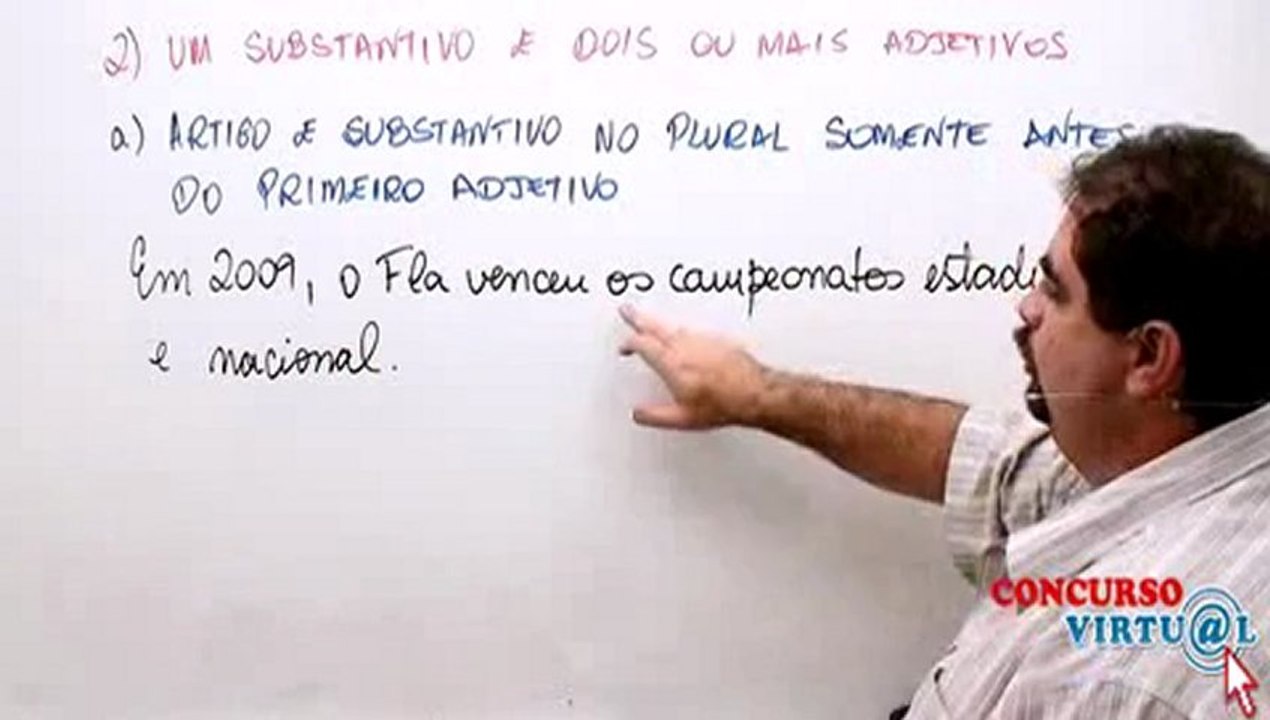 2) UM SUBSTANTIVO E DOIS OU MAIS ADJETIVOS
a) ARTIGO E SUBSTANTIVO NO PLURAL SOMENTE ANTES
DO PRIMEIRO ADJETIVO
Em 2009, o Fla venceu os campeonatos
e nacional.
CONCURSO
VIRTU@L